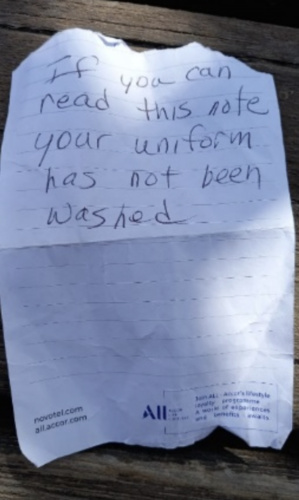 If you can
read this note
your uniform
has not been
washed
novotel.com
all.accor.com
ALL
Join ALL - Accor's lifestyle
loyalty programme
a world of experiences
and benefits awaits